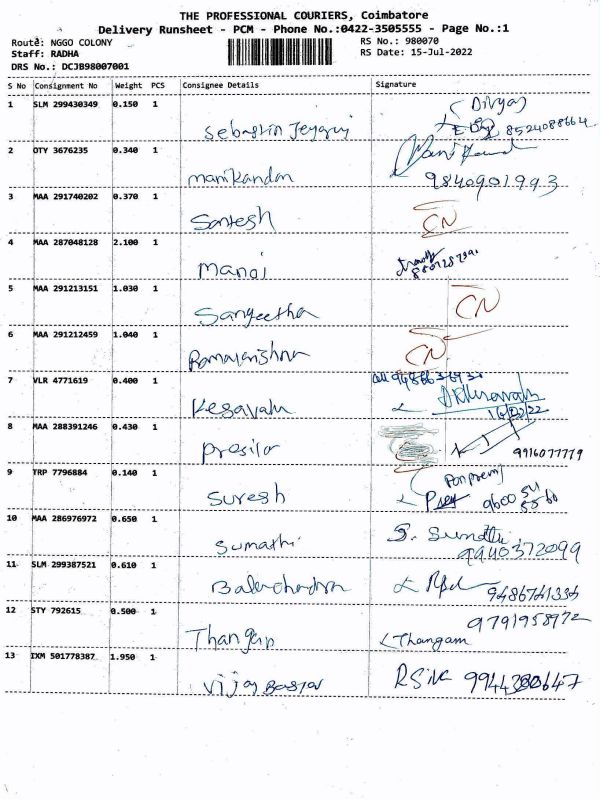 THE PROFESSIONAL COURIERS, Coimbatore
Delivery Runsheet - PCM - Phone No.:0422-3505555 - Page No.:1
Route: NGGO COLONY RS No.: 980070
Staff: RADHA RS Date: 15-Jul-2022
DRS No.: DCJB98007001
S No Consignment No Weight PCS Consignee Details Signature
1 SLM 299430349 0.150 1
Sebastin 8524088664
2 OTY 3676235 0.340 1
manikandan 9840901993
3 MAA 291740202 0.370 1
Santesh CN
4 MAA 287048128 2.100 1
Manoj
5 MAA 291213151 1.030 1
Sangeetha CN
6 MAA 291212459 1.040 1
Ramakrishna CN
7 VLR 4771619 0.400 1
Kesavalu
8 MAA 288391246 0.430 1
Presilla 9916077779
9 TRP 7796884 0.140 1
Suresh 9600
10 MAA 286976972 0.650 1
Sumathi 9940372099
11 SLM 299387521 0.610 1
Balachadra 9486741334
12 STY 792615 0.500 1 9791958972
Thangam Thangam
13 IXM 501778387 1.950 1
Vijay